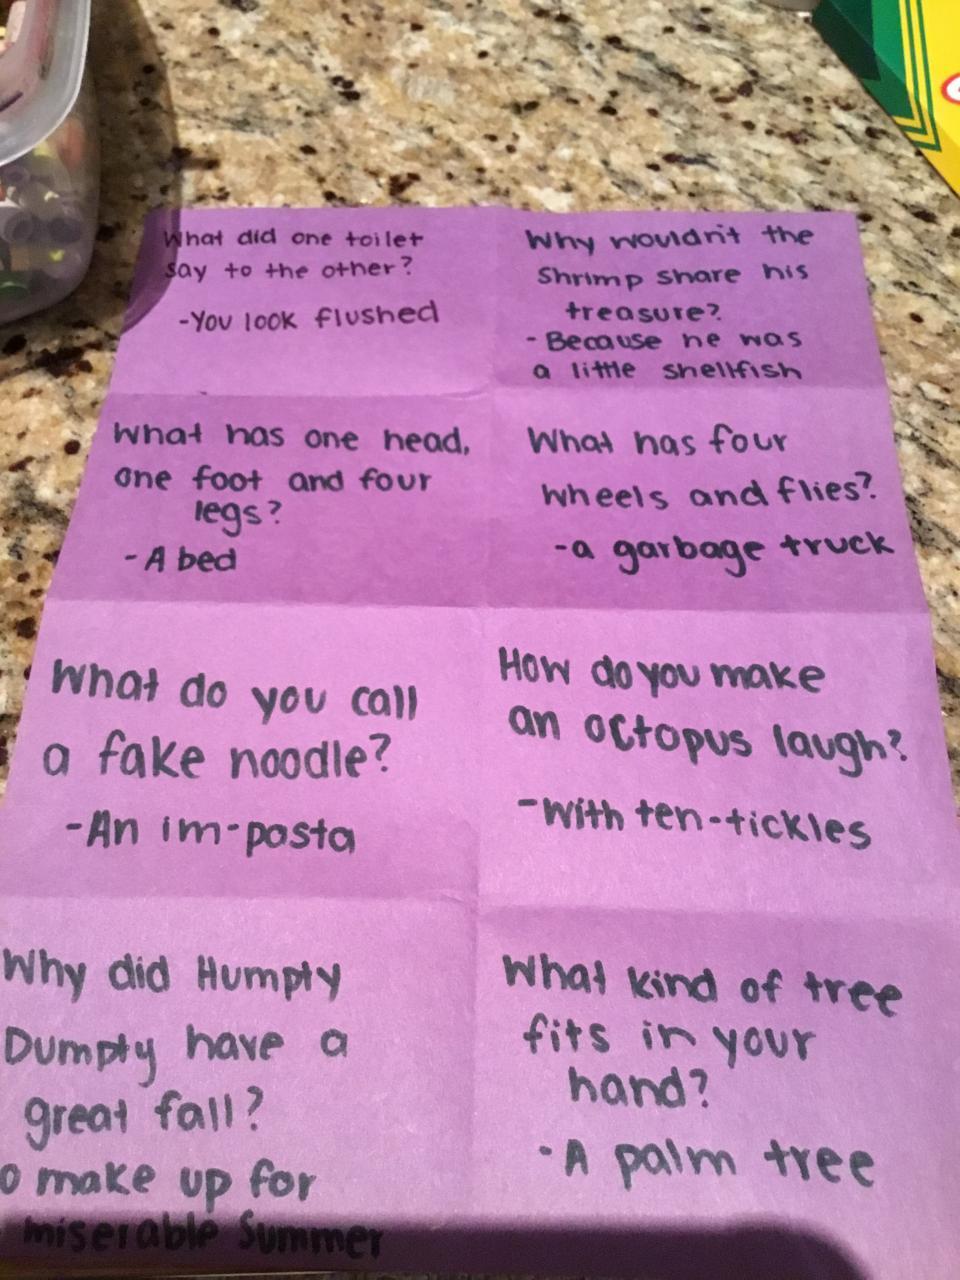 What did one toilet
say to the other?
-You look flushed
Why wouldn't the
Shrimp share his
treasure?
- Because he was
a little shellfish
What has one head,
one foot and four
legs?
- A bed
What has four
wheels and flies?
-a garbage truck
What do you call
a fake noodle?
-An im-pasta
How do you make
an octopus laugh?
-With ten-tickles
Why did Humpty
Dumpty have a
great fall?
make up for
miserable Summer
What kind of tree
fits in your
hand?
-A palm tree